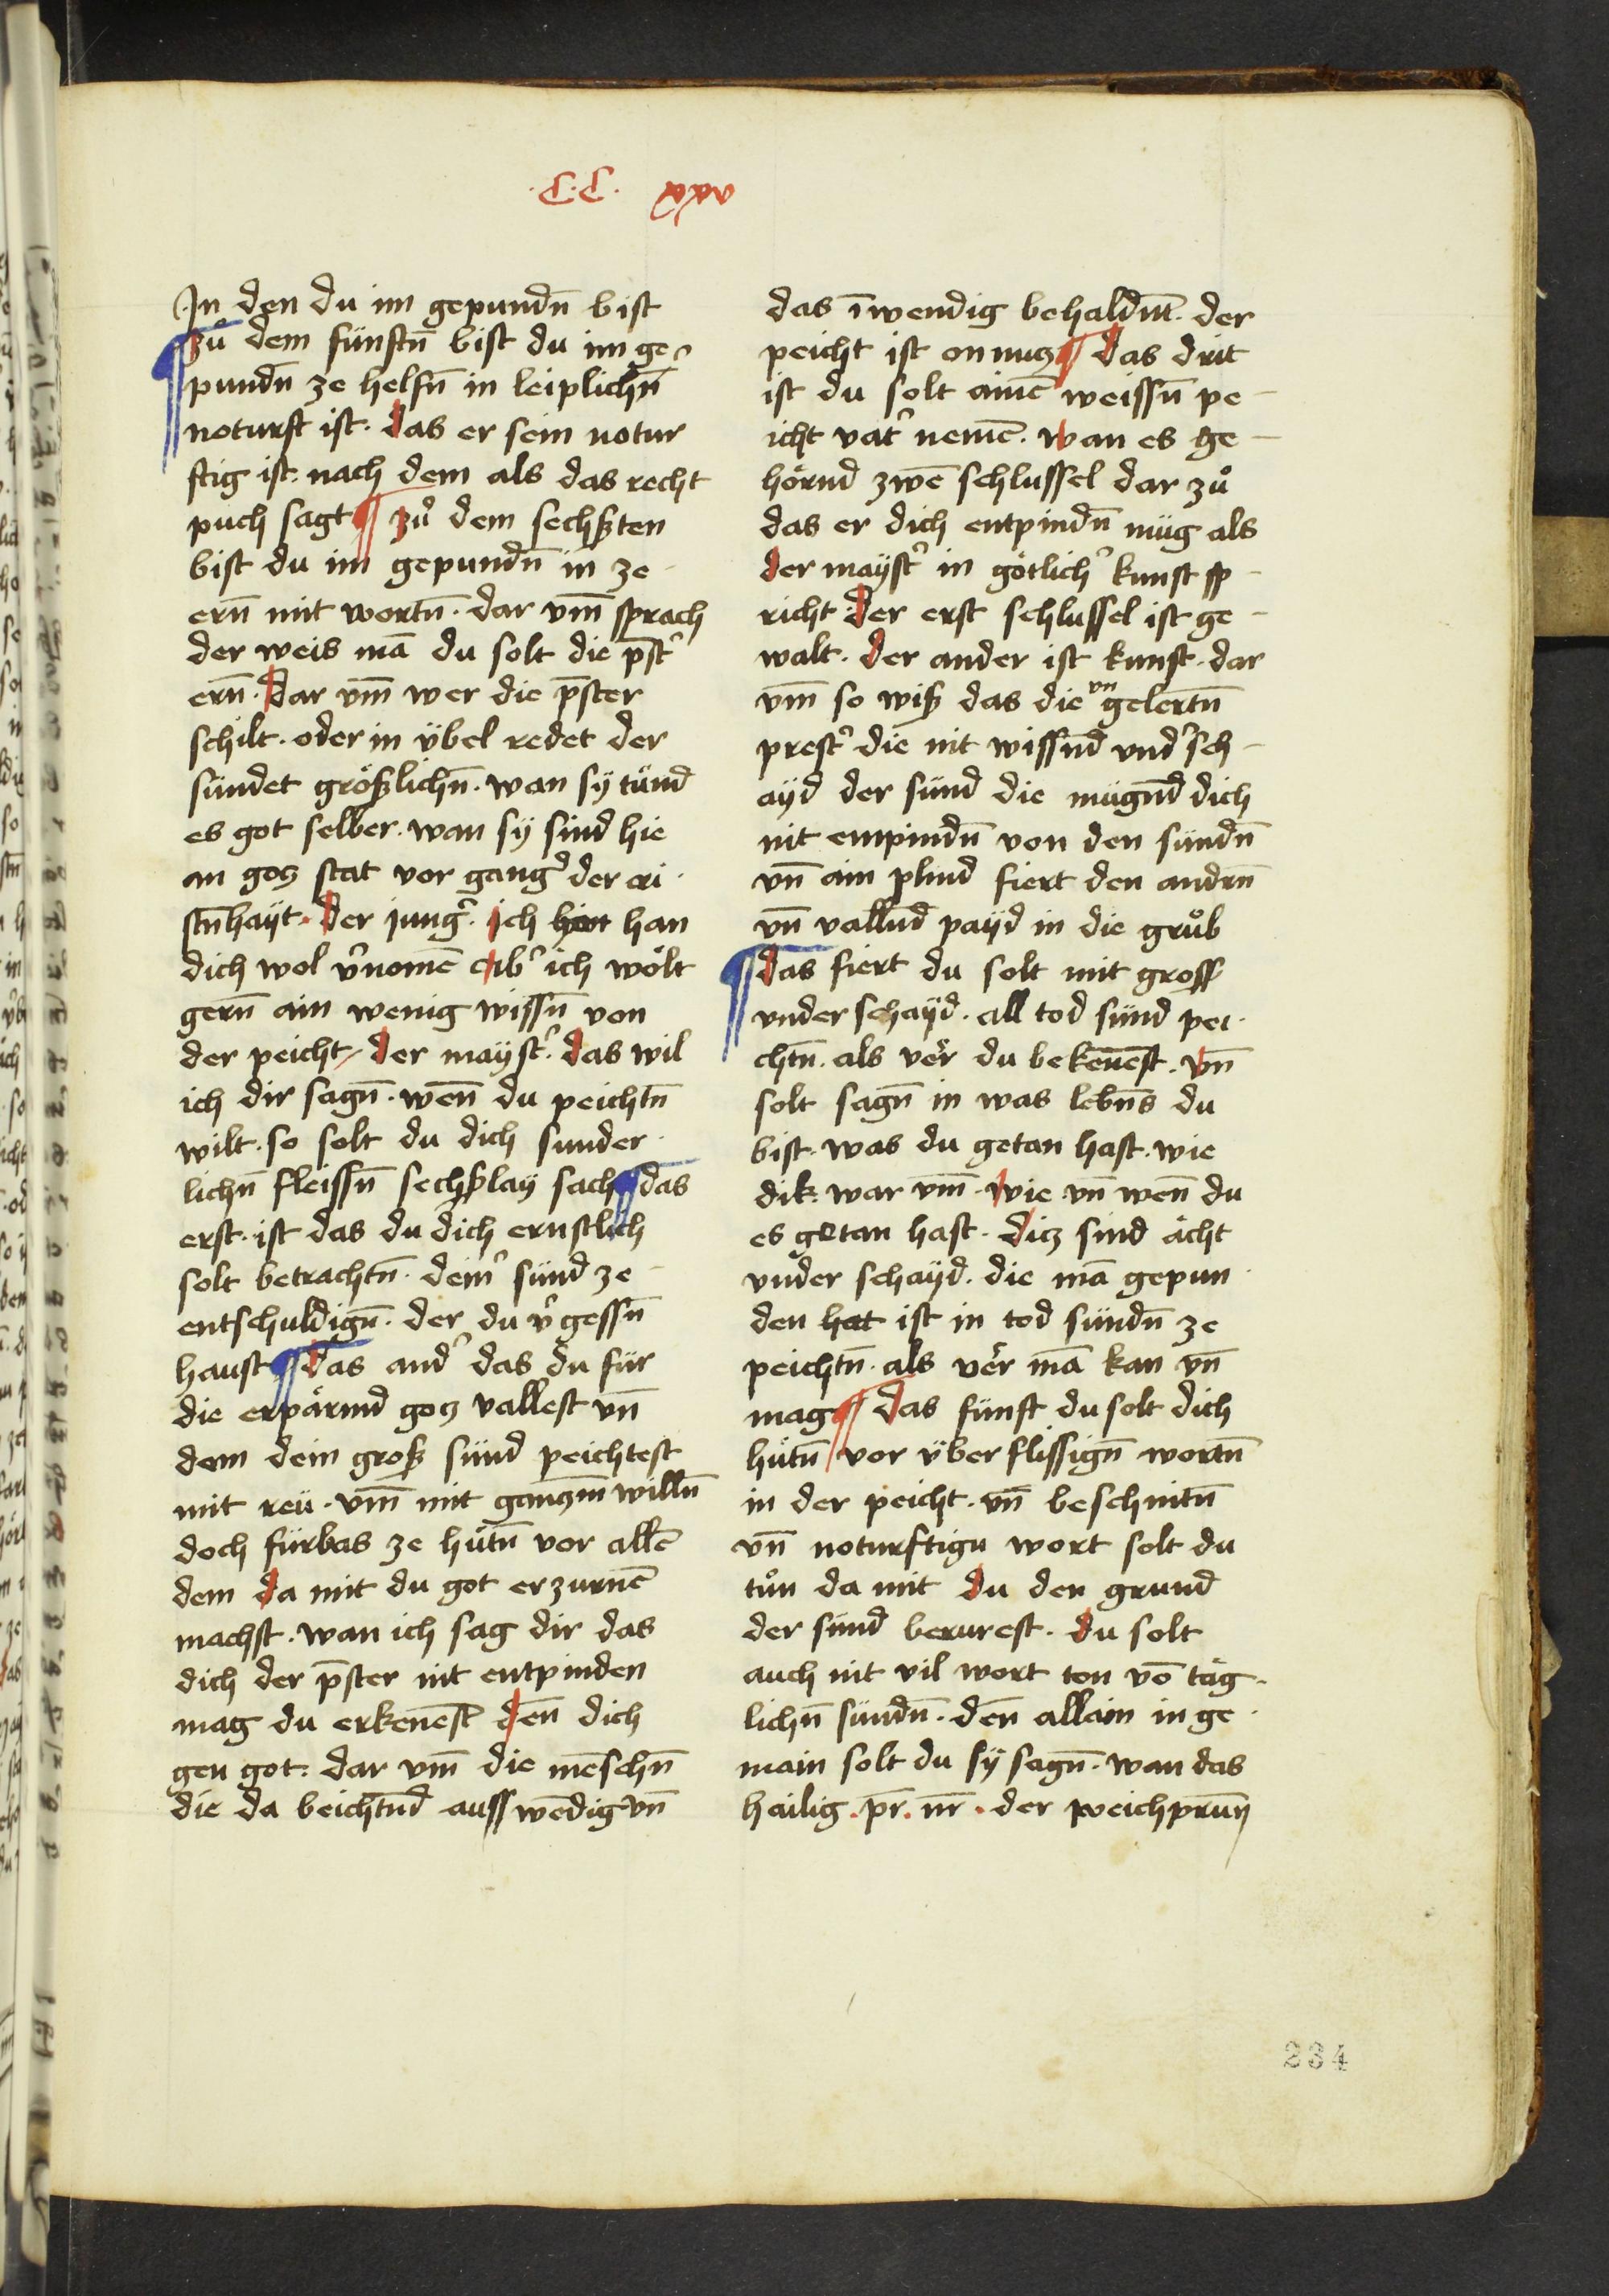 ·C·C· xxxv
Jn den du im gepundn̄ bist
¶ zuͦ dem fünftn̄ bist du im ge
pundn̄ ze helfn̄ in leiplichn̄
noturft ist. das er sein notur
ftig ist. nach dem als das recht
puch sagt ¶ zuͦ dem sechßten
bist du im gepundn̄ in ze
ern̄ mit wortn̄. dar vm̄ sprach
der weis mā du solt die p̄st’
ern̄. Dar vm̄ wer die p̄ster
schilt. oder in v̈bel redet der
sündet größlichn̄. wan sÿ tünd
es got selber. wan sÿ sind hie
an gocz stat vor gang’ der cri
stn̄haÿt. Der jung’. ich hat han
dich wol v’nomē ab’ ich wölt
gern̄ ain wenig wissn̄ von
der peicht / der maÿst’. das wil
ich dir sagn̄. wen̄ du peichtn̄
wilt. so solt du dich sunder
lichn̄ fleissn̄ sechßlaÿ sach ¶ das
erst. ist das du dich ernstlich
solt betrachtn̄. dein’ sünd ze
entschuldign̄. der du v’gessn̄
haust ¶ das and’ das du für
die erpärmd gocz vallest vn̄
dem dein groß sünd peichtest
mit reü. vm̄ mit ganczm̄ willn̄
doch fürbas ze hütn̄ vor allē
dem da mit du got erzurnē
machst. wan ich sag dir das
dich der p̄ster nit entpinden
mag du erkenēst den̄ dich
gen got. dar vm̄ die mēschn̄
die da beichtnd̄ auss wēdig vn̄
das īwendig behaldnt̄. der
peicht ist on nucz ¶ das drit
ist du solt ainē weissn̄ pe
icht vat’ nemē. wan es ge
hörnd zwē schlussel dar zuͦ
das er dich entpindn̄ müg als
der maÿst’ in götlich’ kunst sp
richt. der erst schlussel ist ge
walt. der ander ist kunst. dar
vm̄ so wiß das die vn gelertn̄
prest’ die nit wissnd̄ vnd’sch
aÿd der sünd die mügnd̄ dich
nit enpindn̄ von den sündn̄
vn̄ ain plind fiert den andrn̄
vn̄ vallnd̄ paÿd in die gruͦb
¶ das fiert du solt mit gross
vnder schaÿd. all tod sünd pei
chtn̄. als ver̈ du bekenēst. vn̄
solt sagn̄ in was lebn̄s du
bist. was du getan hast. wie
dik. war vm̄. wie vn̄ wen̄ du
es getan hast. dicz sind ächt
vnder schaÿd. die mā gepun
den hat ist in tod sündn̄ ze
peichtn̄. als ver̈ mā kan vn̄
mag ¶ das fünft du solt dich
hütn̄ vor v̈ber flissign̄ wortn̄
in der peicht. vn̄ beschnitn̄
vn̄ noturftigu wort solt du
tuͦn da mit du den grund
der sünd berurest. du solt
auch nit vil wort ton vō täg
lichn̄ sündn̄. den̄ allain in ge
main solt du sÿ sagn̄. wan das
hailig. pr̄. nr̄. der weichprūn
234